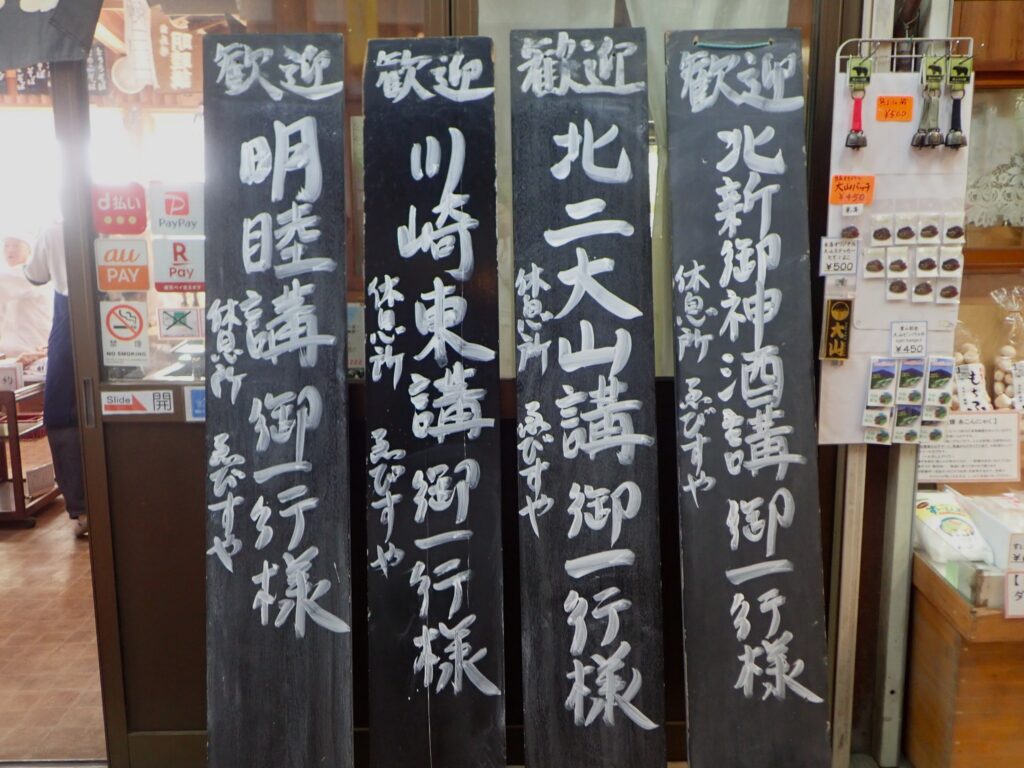 歓迎
北新御神酒講 御一行様
休息所 ゑびすや
歓迎
北二大山講 御一行様
休息所 ゑびすや
歓迎
川崎東講 御一行様
休息所 ゑびすや
歓迎
明睦講 御一行様
休息所 ゑびすや
d払い
PayPay
au
PAY
R
Pay
禁煙
NO SMOKING
Slide
開
¥500
大山バッチ
¥450
¥500
大山
¥450